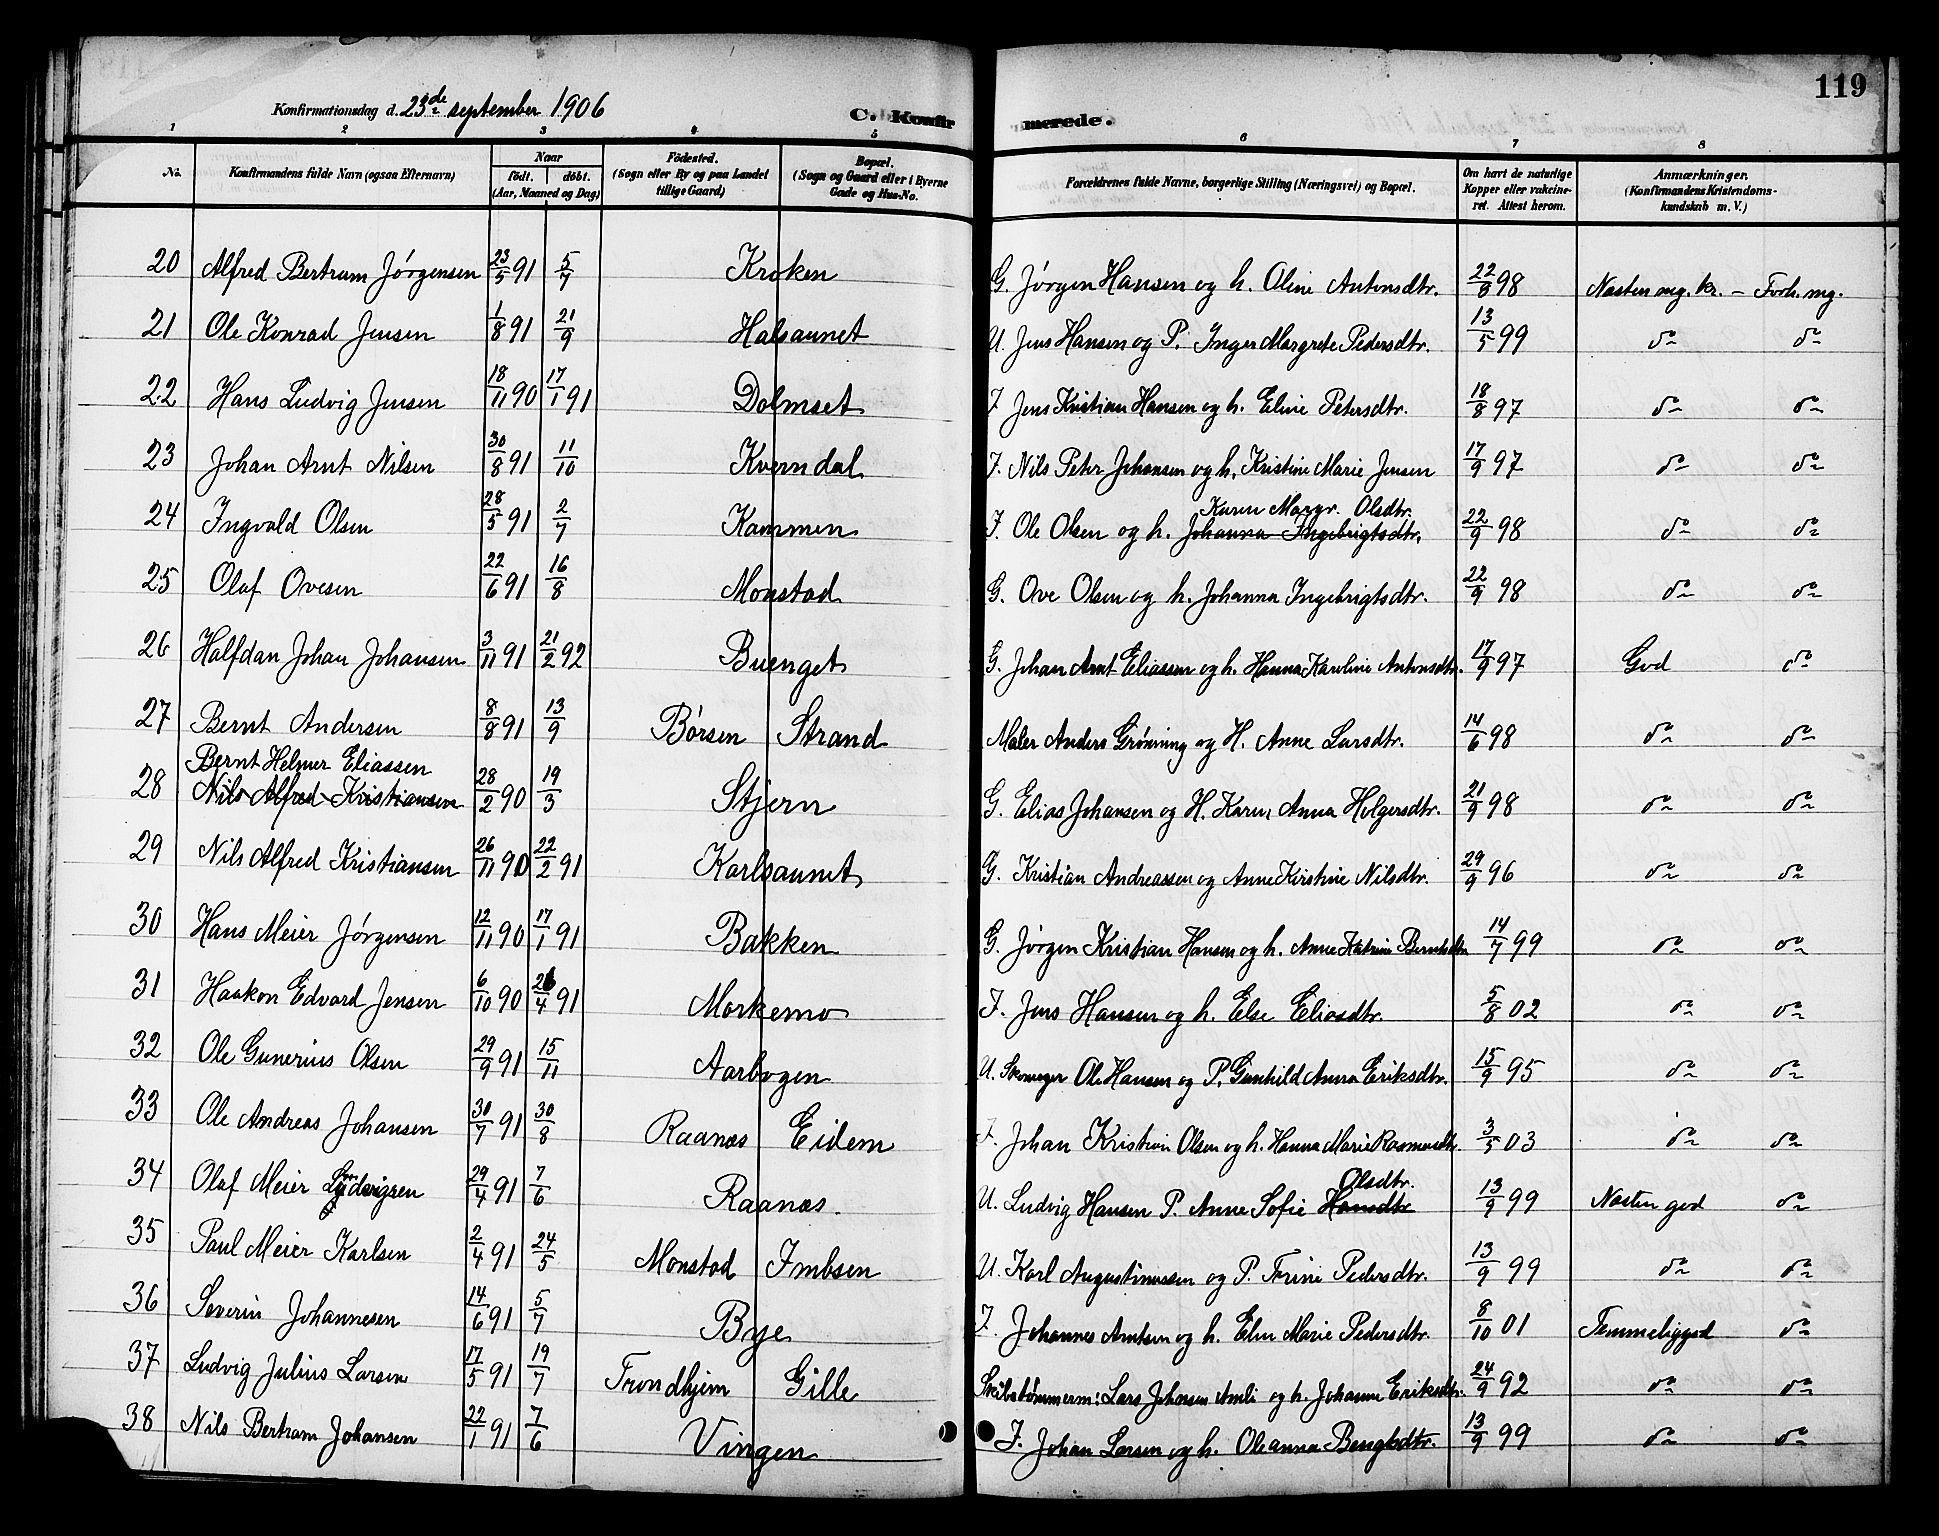 119
Konfirmationsdag d. 23de september 1906
C. Konfirmerede.
1 2 3 4 5 6 7 8
No. Konfirmandens fulde Navn (ogsaa Efternavn) Naar födt. döbt. (Aar, Maaned og Dag) Födested. (Sogn eller By og paa Landet tillige Gaard) Bopæl. (Sogn og Gaard eller i Byerne Gade og Hus-No. Forældrenes fulde Navne, borgerlige Stilling (Næringsvei) og Bopæl. Om havt de naturlige Kopper eller vakcineret. Attest herom. Anmærkninger. (Konfirmandens Kristendomskundskab m. V.)
20 Alfred Bertram Jørgensen 23/5 91 5/7 Kroken G. Jørgen Hansen og h. Oline Antonsdtr. 22/8 98 Næsten mg. kr. – Forh. mg.
21 Ole Konrad Jensen 1/8 91 21/9 Halsaunet U. Jens Hansen og P. Inger Margrete Pedersdtr. 13/5 99 do do
22 Hans Ludvig Jensen 18/11 90 17/1 91 Dolmset I. Jens Kristian Hansen og h. Eline Petersdtr. 18/8 97 do do
23 Johan Arnt Nilsen 30/8 91 11/10 Kverndal I. Nils Peter Johansen og h. Kristine Marie Jensen 17/9 97 do do
Karen Margr. Olsdtr.
24 Ingvald Olsen 28/5 91 2/7 Kammen I. Ole Olsen og h. Johanna Ingebrigtsdtr. 22/9 98 do do
25 Olaf Ovesen 22/6 91 16/8 Monstad G. Ove Olsen og h. Johanna Ingebrigtsdtr. 22/9 98 do do
26 Halfdan Johan Johansen 3/11 91 21/2 92 Buenget G. Johan Arnt Eliassen og h. Hanna Karoline Antonsdtr. 17/9 97 God do
27 Bernt Andersen 8/8 91 13/9 Børsen Strand Maler Anders Grønning og H. Anne Larsdtr. 14/6 98 do do
Bernt Helmer Eliassen
28 Nils Alfred Kristiansen 28/2 90 19/3 Stjern G. Elias Johansen og H. Karen Anna Holgersdtr. 21/9 98 do do
29 Nils Alfred Kristiansen 26/11 90 22/2 91 Karlsaunet G. Kristian Andreassen og Anne Kirstine Nilsdtr. 29/9 96 do do
30 Hans Meier Jørgensen 12/11 90 17/1 91 Bakken G. Jørgen Kristian Hansen og h. Anne Katrine Berntsdtr. 14/7 99 do do
31 Haakon Edvard Jensen 6/10 90 26/4 91 Morkemo I. Jens Hansen og h. Else Eliasdtr. 5/8 02 do do
32 Ole Gunerius Olsen 29/9 91 15/11 Aarbogen U. Skomager Ole Hansen og P. Gunhild Anna Eriksdtr. 15/9 95 do do
33 Ole Andreas Johansen 30/7 91 30/8 Raanæs Eidem I. Johan Kristian Olsen og h. Hanna Marie Rasmusdtr. 3/5 03 do do
Olsdtr.
34 Olaf Meier Ludvigsen 29/4 91 7/6 Raanæs. U. Ludvig Hansen P. Anne Sofie Hansdtr 13/9 99 Næsten god do
35 Paul Meier Karlsen 2/4 91 24/5 Monstad Imbsen U. Karl Augustinussen og P. Trine Pedersdtr. 13/9 99 do do
36 Severin Johannesen 14/6 91 5/7 Bye I. Johannes Arntsen og h. Elen Marie Pedersdtr. 8/10 01 Temmelig god do
37 Ludvig Julius Larsen 17/5 91 19/7 Trondhjem Gille Skibstømmerm: Lars Johansen Amli og h. Johanne Eriksdtr. 24/9 92 do do
38 Nils Bertram Johansen 22/1 91 7/6 Vingen I. Johan Larsen og h. Oleanna Bengtsdtr. 13/9 99 do do